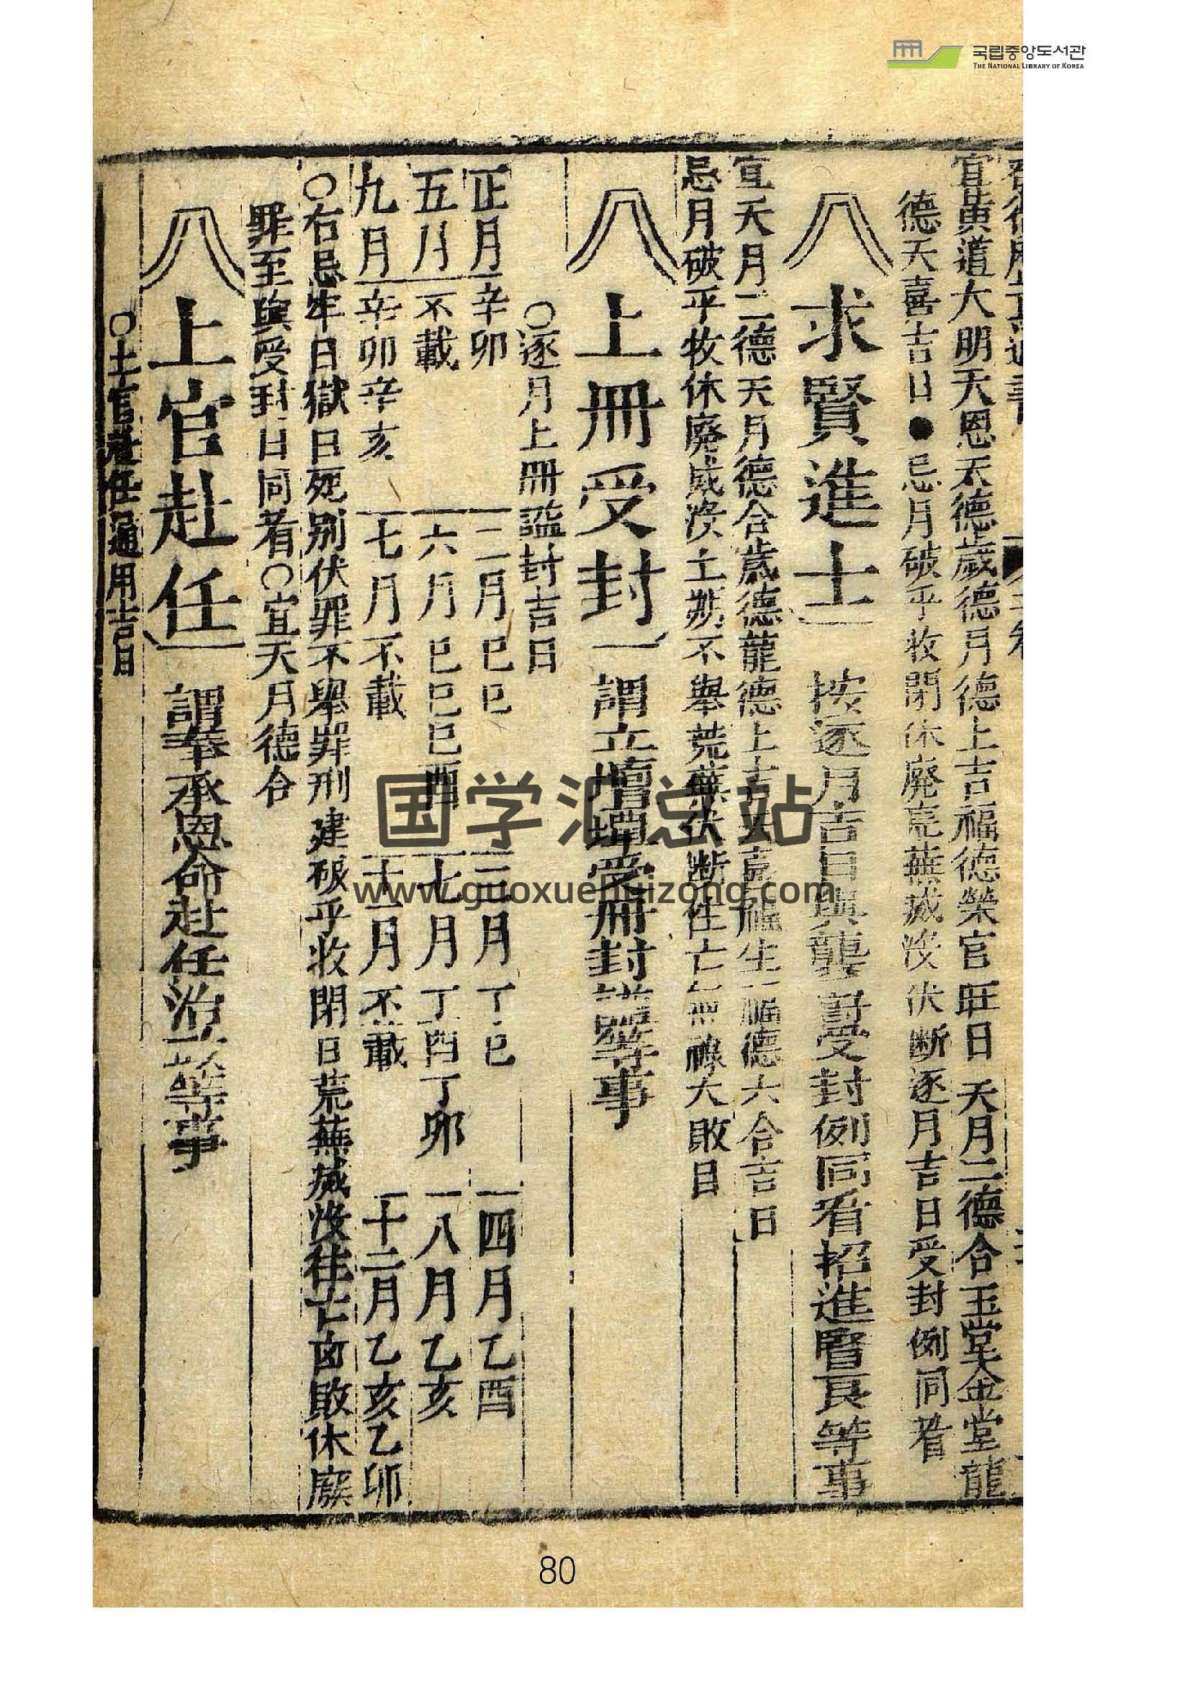 국립중앙도서관
THE NATIONAL LIBRARY OF KOREA
宜黄道大明天恩天德歲德月德上吉福德榮官旺日天月二德合玉堂金堂龍
德天喜吉日●忌月破平收閉休廢荒蕪滅没伏断逐月吉日受封例同看
求賢進士 按逐月吉日與襲爵受封例同看招進賢良等事
宜天月二德天月德合歲德龍德上吉天喜福生福德六合吉日
忌月破平收休廢滅没土瘟不舉荒蕪伏断往亡無祿大敗日
上冊受封 謂立壇墠受冊封謚等事
○逐月上冊謚封吉日
正月辛卯 二月巳巳 三月丁巳 四月乙酉
五月不載 六月巳巳巳酉 七月丁酉丁卯 八月乙亥
九月辛卯辛亥 十月不載 十一月不載 十二月乙亥乙卯
○右忌牢日獄日死别伏罪不舉罪刑建破平收閉日荒蕪滅没往亡凶敗休廢
罪至與受封日同看○宜天月德合
上官赴任 謂奉承恩命赴任治政等事
○上官赴任通用吉日
国学汇总站
www.guoxuehuizong.com
80